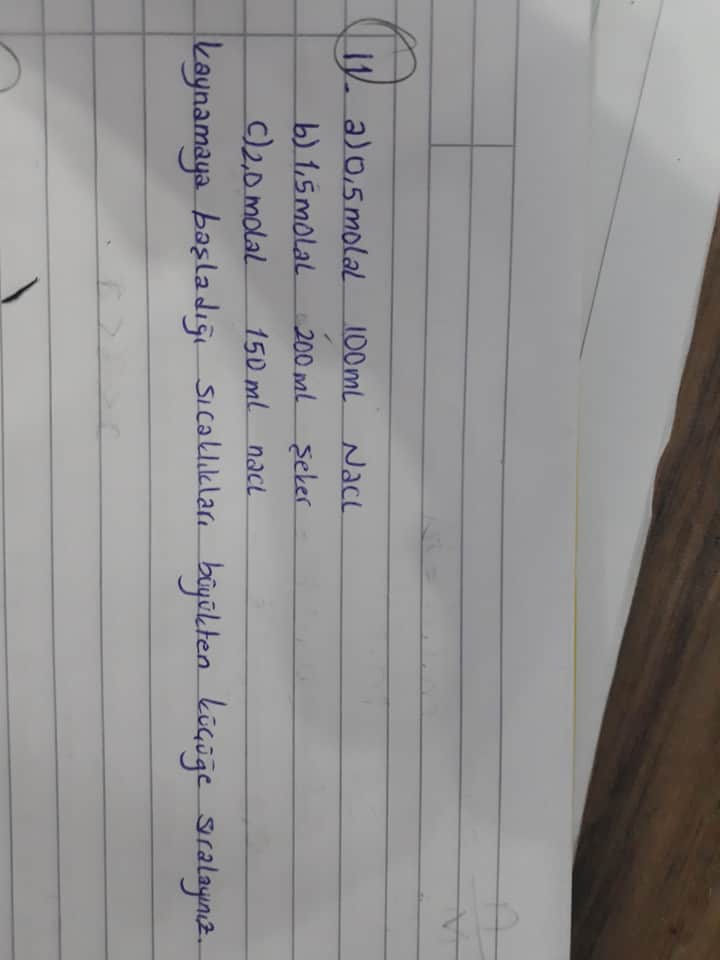 11. a) 0,5 molal 100ml NaCl
b) 1,5 molal 200 ml şeker
c) 2,0 molal 150 ml nacl
kaynamaya başladığı sıcaklıkları büyükten küçüğe sıralayınız.